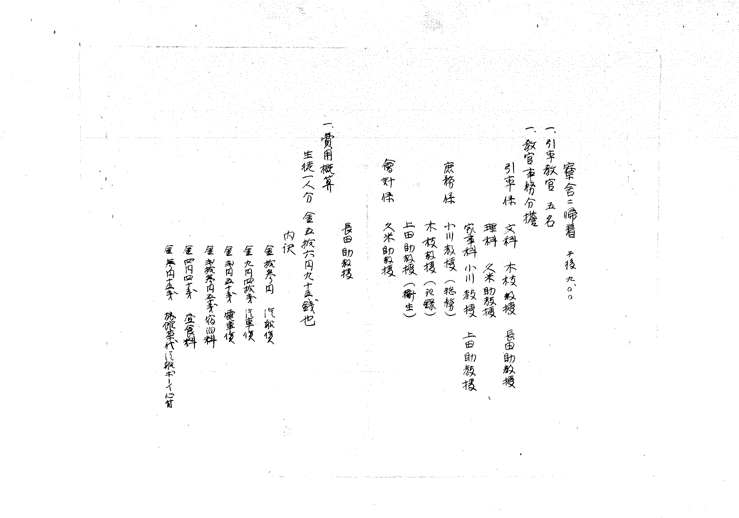 寮舎ニ帰着 午後九、〇〇
一、引率教官 五名
一、教官事務分擔
引率係 文科 木枝教授 長田助教授
理科 久米助教授
家事科 小川教授 上田助教授
庶務係 小川教授(総務)
木枝教授(記録)
上田助教授(衛生)
會計係 久米助教授
長田助教授
一、費用概算
生徒一人分 金五拾六円九十五銭也
内訳
金拾参円 汽船賃
金九円四拾銭 汽車賃
金 円五十銭 電車賃
金 拾参円五十銭 宿泊料
金四円四十銭 昼食料
金 円十五銭 旅館茶代汽船ボーイ心付